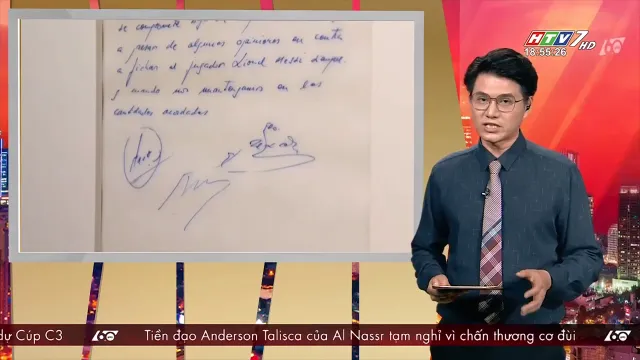 se compromete
a pesar de algunas opiniones en contra
a fichar al jugador Lionel Messi
y cuando nos mantengamos en las
cantidades acordadas
HTV7 HD
18:55:26
60
dự Cúp C3 60 Tiền đạo Anderson Talisca của Al Nassr tạm nghỉ vì chấn thương cơ đùi 60